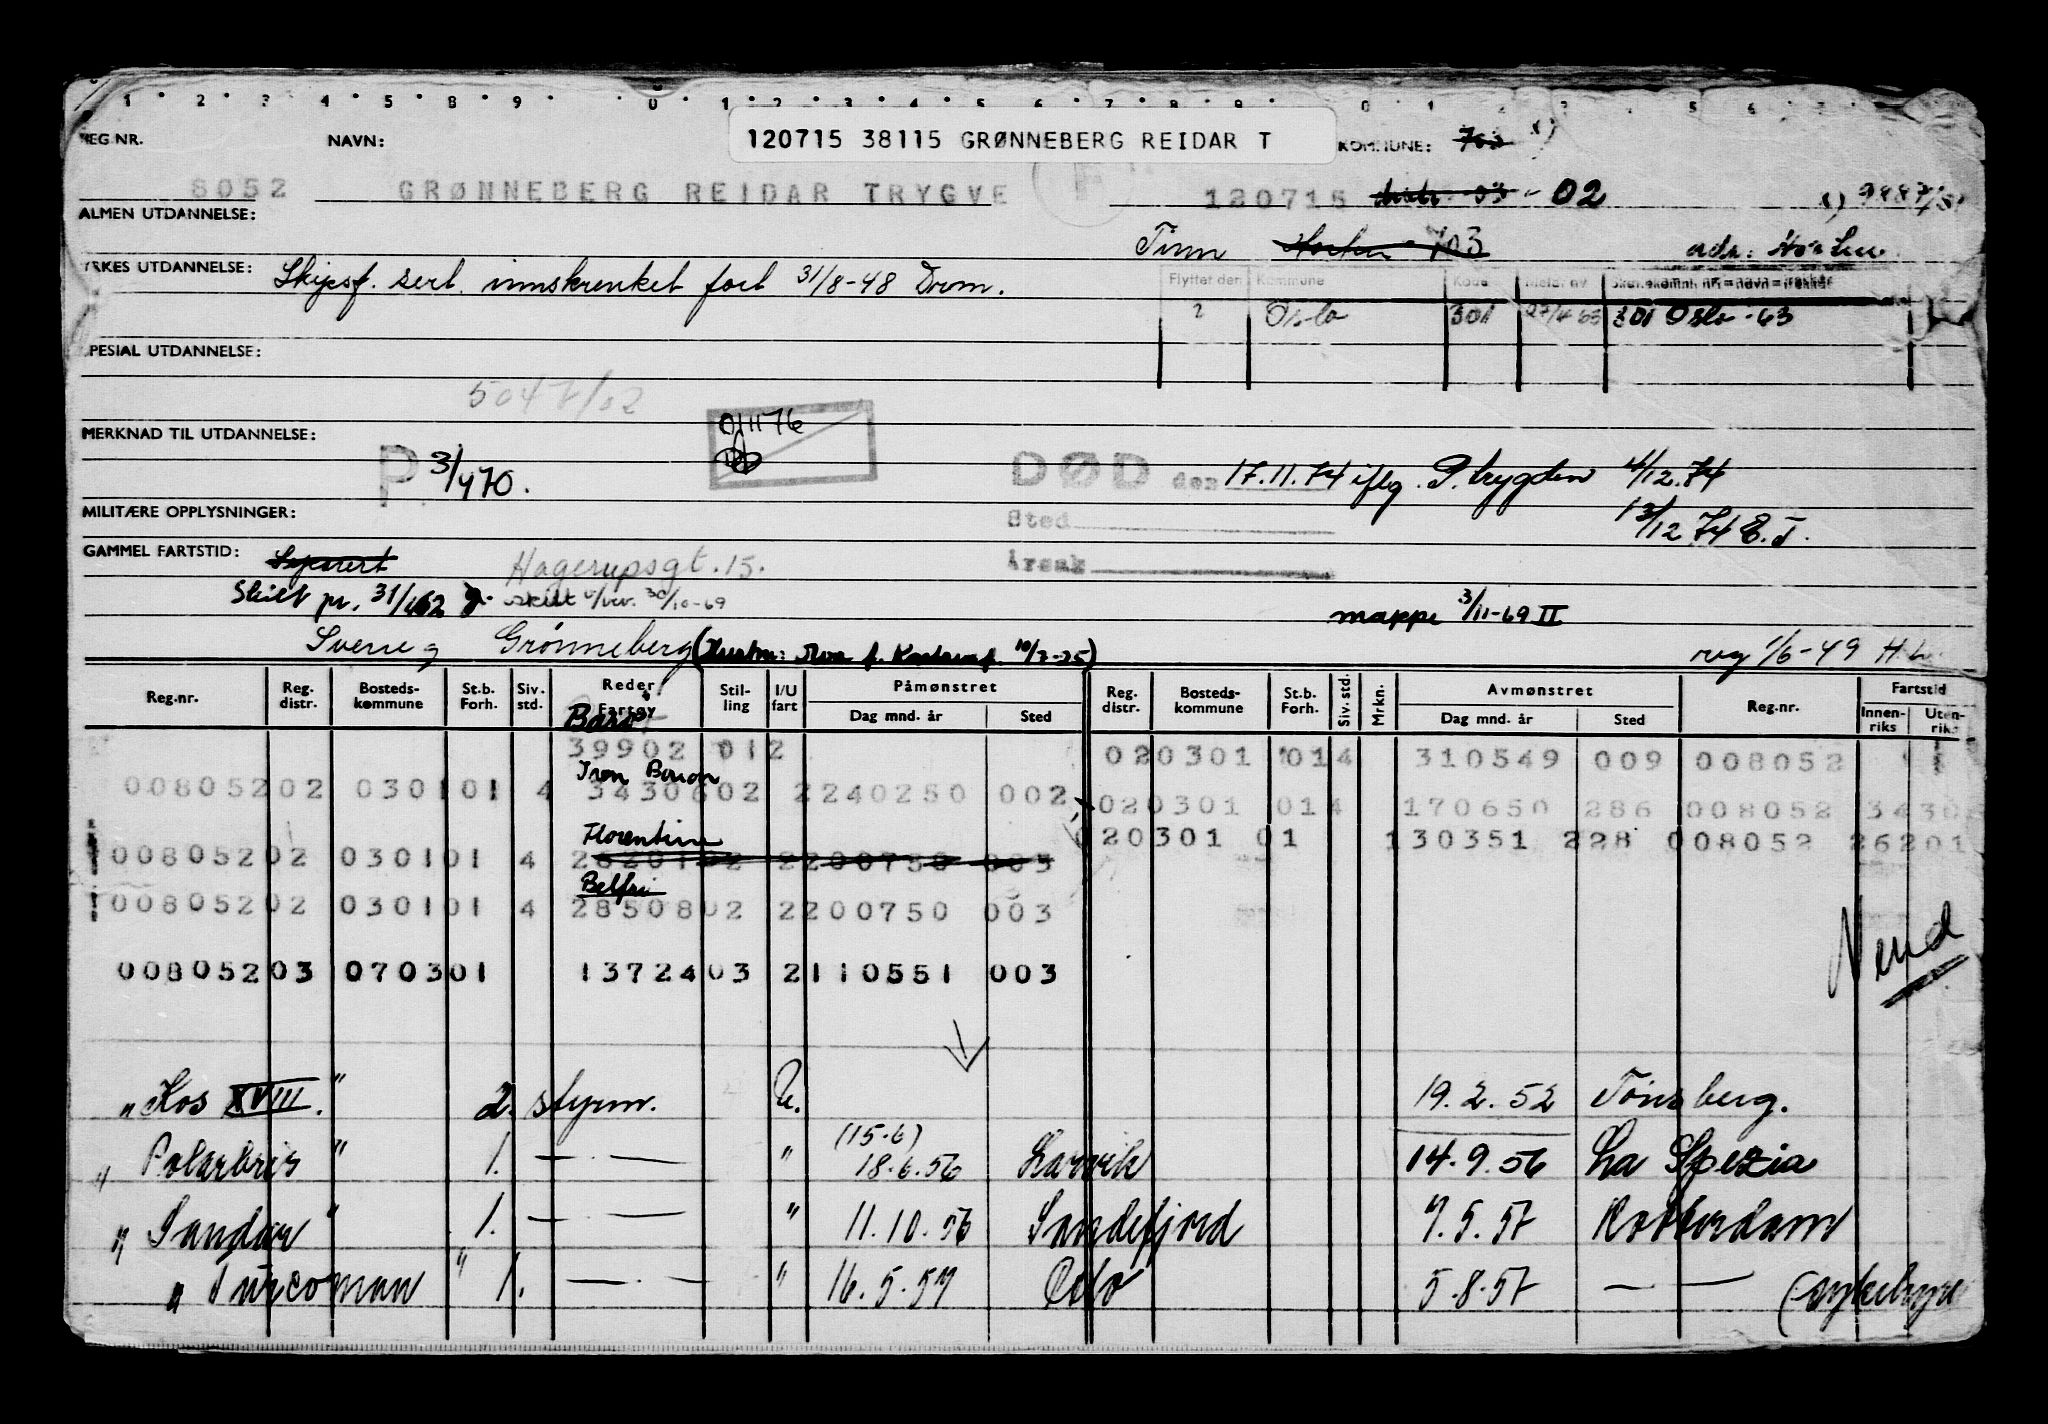 1 2 3 4 5 8 9 0 1 2 3 4 5 6 7 8 9 0 1 2 3 5 6 7
REG.NR. NAVN: 120715 38115 GRØNNEBERG REIDAR T KOMMUNE: 703 x)
8052 GRØNNEBERG REIDAR TRYGVE F 120715 02 x)
ALMEN UTDANNELSE:
Tinn 703 adr.
YRKES UTDANNELSE: Skipsf. sert. innskrenket fart 31/8-48 Drm.
Flyttet den Kommune Kode
2 Oslo 301 27/4 63 301 Oslo -63
SPESIAL UTDANNELSE:
5047/02
011176
MERKNAD TIL UTDANNELSE:
P 3/470.
DØD den 17.11.74 iflg. P.trygden 4/12.74
MILITÆRE OPPLYSNINGER:
Sted
13/12 74 E.J.
GAMMEL FARTSTID: Separert Hagerupsgt. 15.
Årsak
Skilt pr. 31/ 62 skilt 30/10-69
mappe 3/11-69 II
Sverre g Grønneberg (Hustru: f. 10/3-25)
reg 1/6-49 H.L.
Reg.nr. Reg. distr. Bosteds-kommune St.b. Forh. Siv. std. Reder Fartøy Stil-ling I/U fart Påmønstret Dag mnd. år Sted Reg. distr. Bosteds-kommune St.b. Forh. Siv. std. Mrkn. Avmønstret Dag mnd. år Sted Reg.nr. Fartstid Innen-riks Uten-riks
39902 012 020301 014 310549 009 008052
Iron Baron
00805202 030101 4 3430602 2240250 002 020301 014 170650 286 008052 3430
Florentine
020301 01 130351 228 008052 26201
00805202 030101 4 2620102 2200750 003
Belfri
00805202 030101 4 2850802 2200750 003
Vend
00805203 070301 1372403 2110551 003
" Kos XVIII." 2. styrm. U. 19.2.52 Tønsberg.
" Polarbris" 1. — — " (15.6) 18.6.56 Larvik 14.9.56 La Spezia
" Sandar" 1. — — " 11.10.56 Sandefjord 7.5.57 Rotterdam
" Turcoman" 1. — — " 16.5.57 Oslo 5.8.57 — —